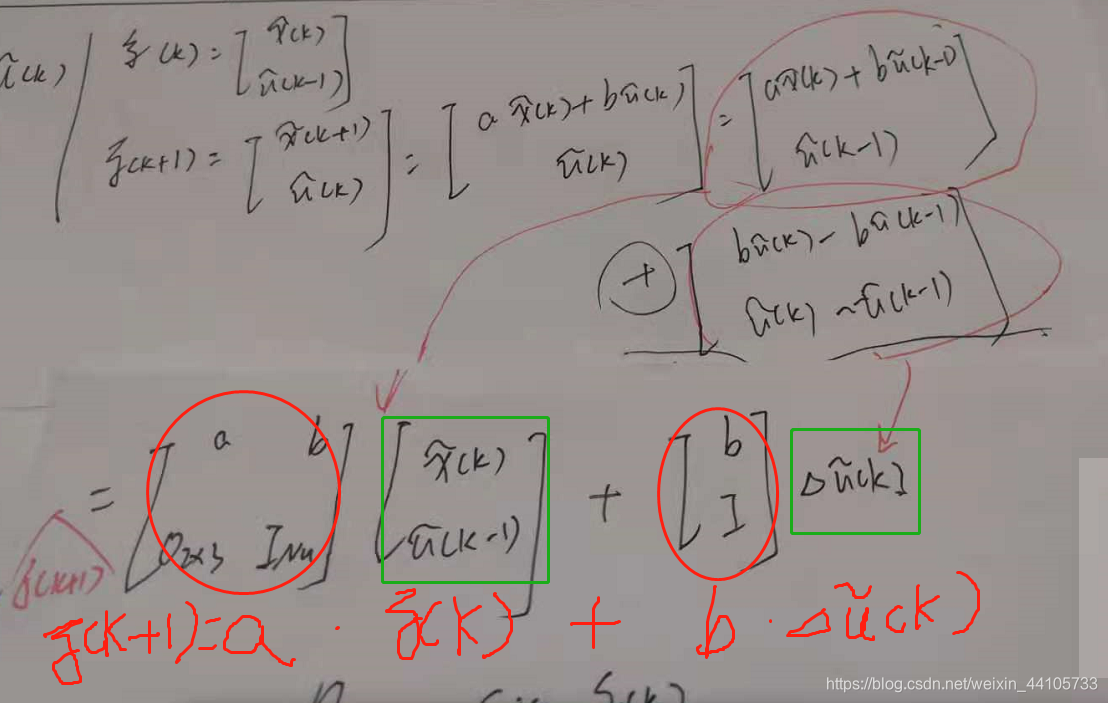 ũ(k)
ξ(k) = [x̃(k)
ũ(k-1)]
ξ(k+1) = [x̃(k+1)
ũ(k)] = [a x̃(k) + bũ(k)
ũ(k)] = [ax̃(k) + bũ(k-1)
ũ(k-1)]
+ [bũ(k) - bũ(k-1)
ũ(k) - ũ(k-1)]
= [a b
O2×3 INu] [x̃(k)
ũ(k-1)] + [b
I] Δũ(k)
ξ(k+1)
ξ(k+1) = a · ξ(k) + b · Δũ(k)
https://blog.csdn.net/weixin_44105733